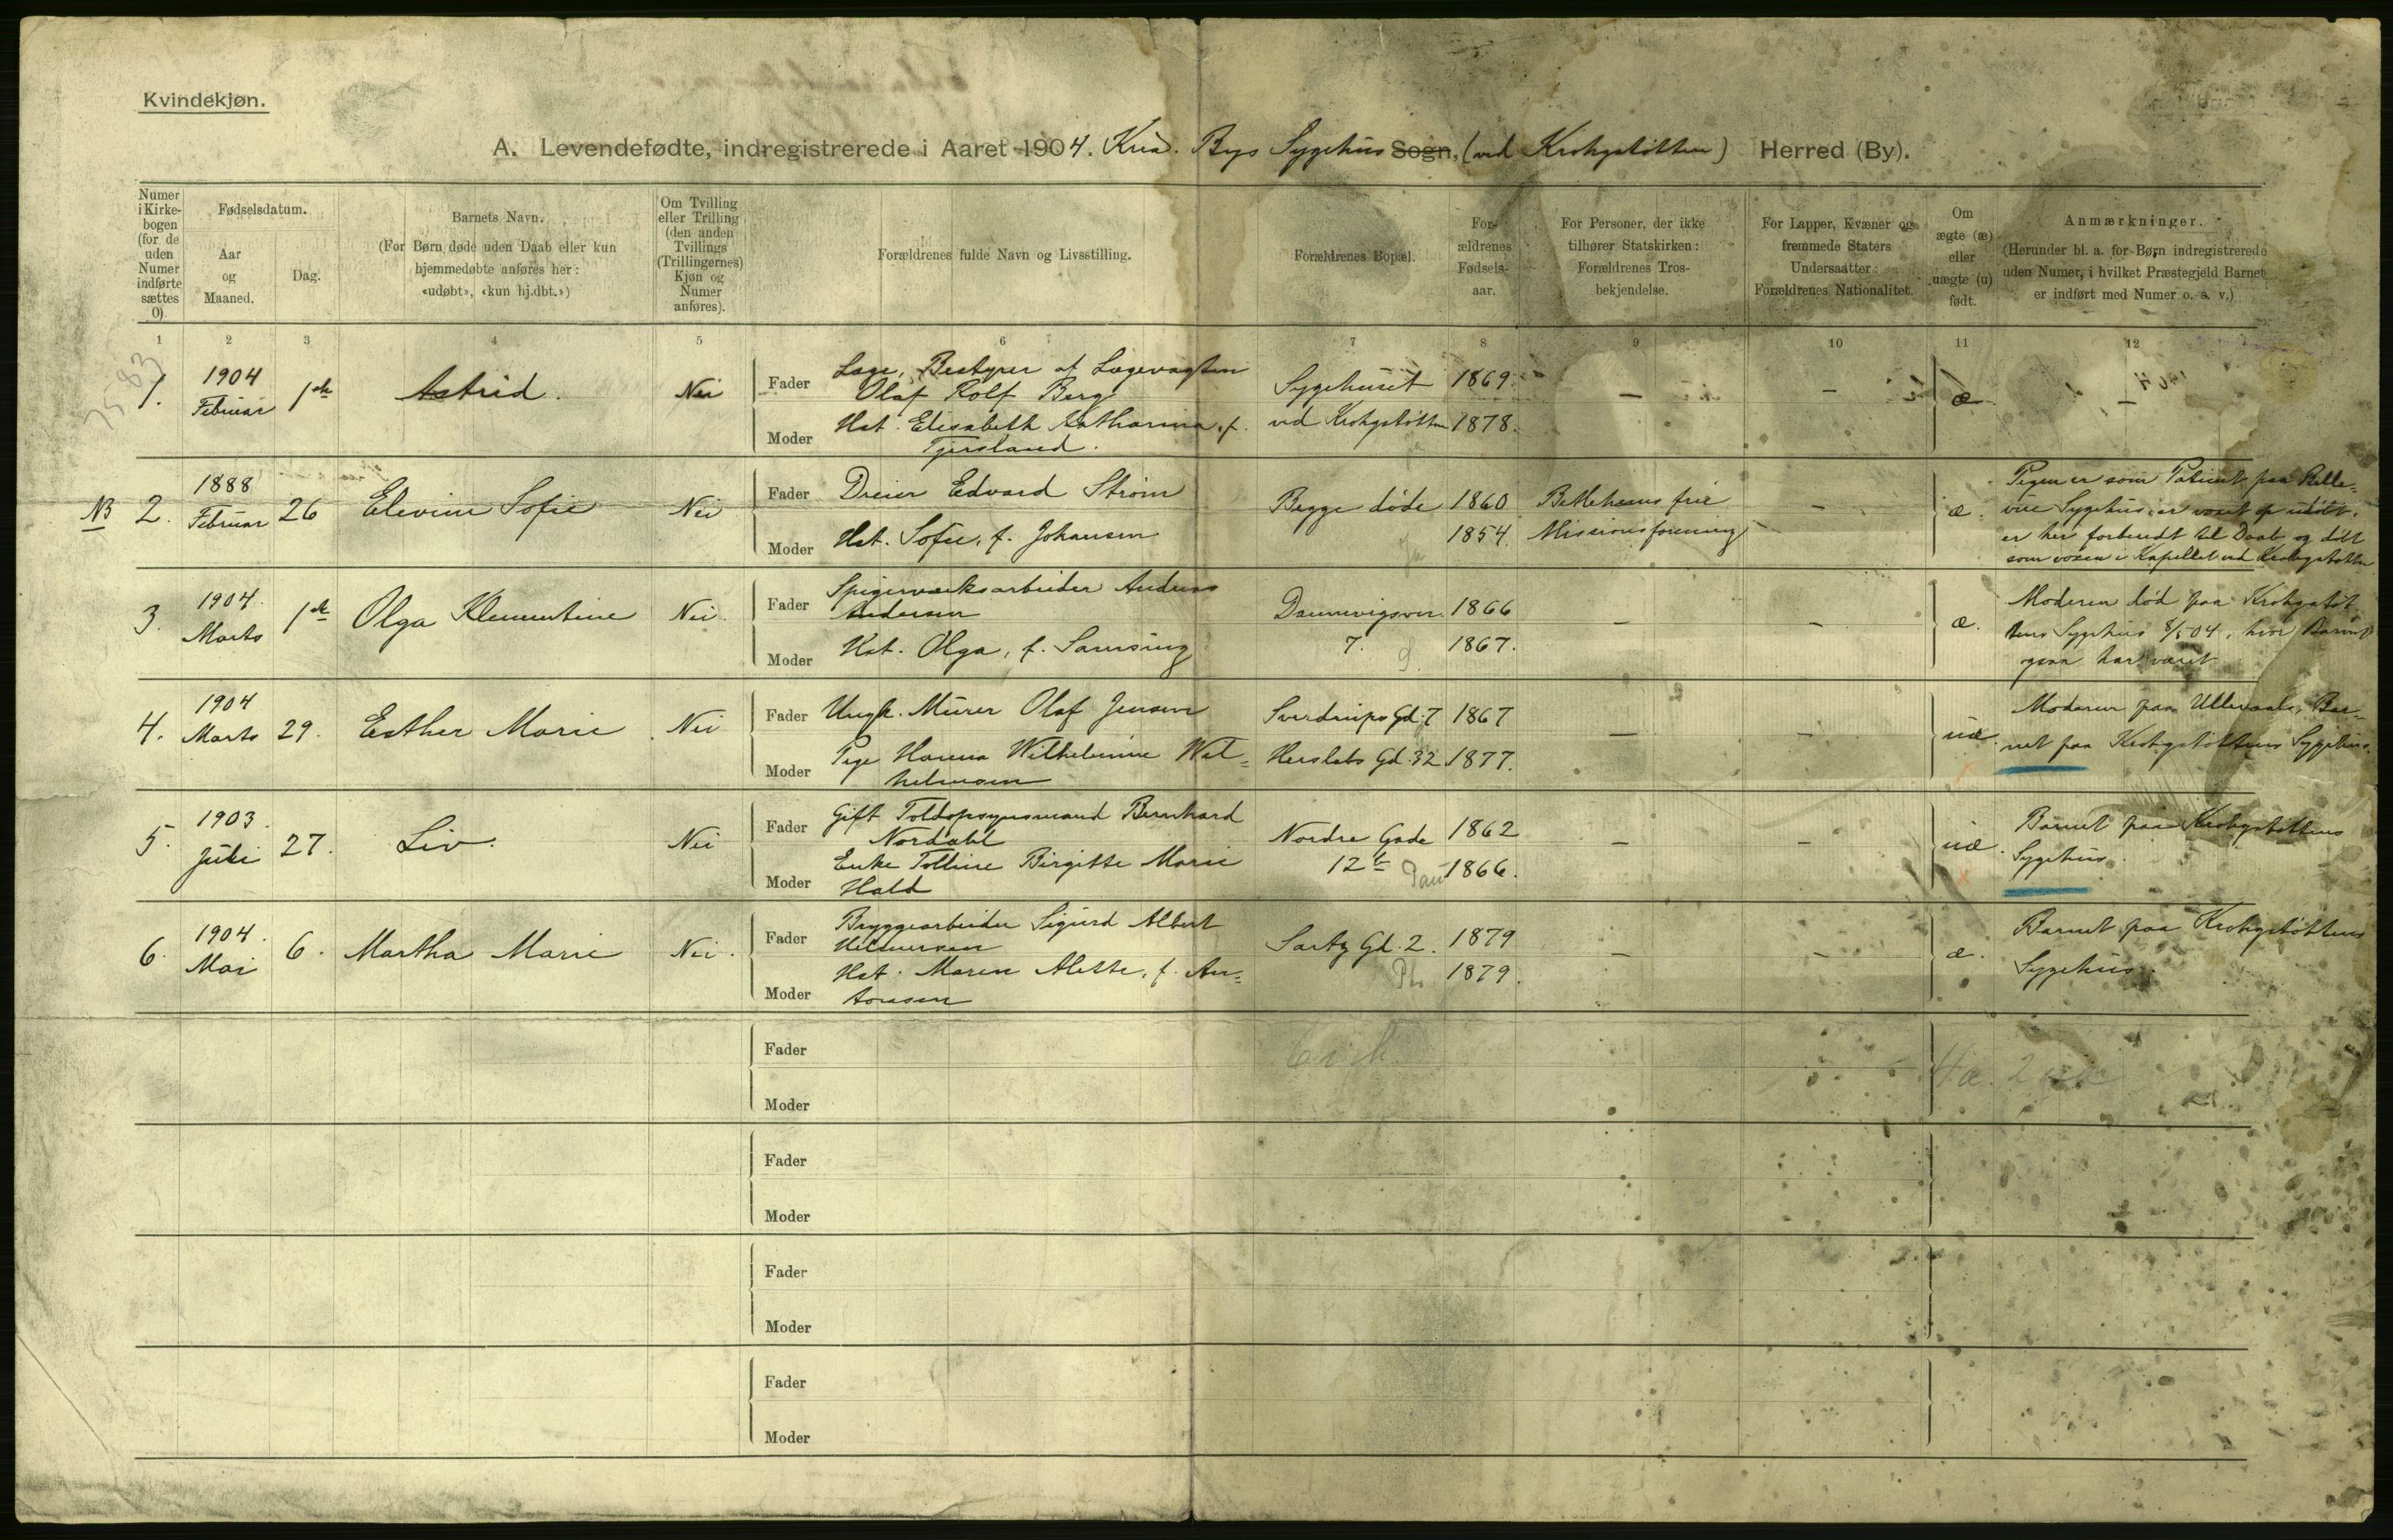 Kvindekjøn.
A. Levendefødte, indregistrerede i Aaret 1904. Kria. Bys Sygehus Sogn, (ved Krohgstøtten) Herred (By).
Numer i Kirkebogen (for de uden Numer indførte sættes 0)
Fødselsdatum.
Aar og Maaned.
Dag.
Barnets Navn.
(For Børn døde uden Daab eller kun
hjemmedøbte anføres her:
«udøbt», «kun hj.dbt.»)
Om Tvilling
eller Trilling
(den anden
Tvillings
(Trillingernes)
Kjøn og
Numer
anføres).
Forældrenes fulde Navn og Livsstilling.
Forældrenes Bopæl.
For-
ældrenes
Fødsels-
aar.
For Personer, der ikke
tilhører Statskirken:
Forældrenes Tros-
bekjendelse.
For Lapper, Kvæner og
fremmede Staters
Undersaatter:
Forældrenes Nationalitet.
Om
ægte (æ)
eller
uægte (u)
født.
Anmærkninger.
(Herunder bl. a. for Børn indregistrerede
uden Numer, i hvilket Præstegjeld Barnet
er indført med Numer o. s. v.)
1 2 3 4 5 6 7 8 9 10 11 12
1. 1904 Februar 1ste Astrid. Nei
Fader Læge, Bestyrer af Lægevagten
Olaf Rolf Berg
Moder Hst. Elisabeth Katharina, f.
Tjersland.
Sygehuset 1869.
ved Krohgstøtten 1878.
– – æ –
NB 2. 1888 Februar 26 Elevine Sofie Nei
Fader Dreier Edvard Strøm
Moder Hst. Sofie, f. Johansen
Begge døde 1860 Bethlehems frie
1854. Missionsforening
– æ.
Pigen er som Patient paa Belle-
vue Sygehus, er voxet op udøbt,
er her forberedt til Daab og døbt
som voxen i Kapellet ved Krohgstøtten
3. 1904. Marts 1ste Olga Klementine Nei.
Fader Spigerværksarbeider Anders
Andersen
Moder Hst. Olga, f. Samsing
Damvigsven. 1866
7. 1867.
– – æ.
Moderen død paa Krohgstøt-
tens Sygehus 8/5 04, hvor Barnet
ogsaa har været
4. 1904 Marts 29. Esther Marie Nei
Fader Ungk. Murer Olaf Jensen
Moder Pige Hanna Wilhelmine Wil-
helmsen
Sverdrups Gd. 7 1867
Herslebs Gd. 32 1877.
– – uæ.
Moderen paa Ullevaal, Bar-
net paa Krohgstøttens Sygehus.
5. 1903. Juli 27. Liv. Nei
Fader Gift Toldopsynsmand Bernhard
Nordahl
Moder Enke Tolline Birgitte Marie
Hald
Nordre Gade 1862
12b 1866.
– – uæ.
Barnet paa Krohgstøttens
Sygehus.
6. 1904. Mai 6. Martha Marie Nei.
Fader Bryggearbeider Sigurd Albert
Helmersen
Moder Hst. Maren Alette, f. An-
tonsen
Sartz Gd. 2. 1879
1879.
– – æ.
Barnet paa Krohgstøttens
Sygehus.
Fader
Moder
Fader
Moder
Fader
Moder
Fader
Moder